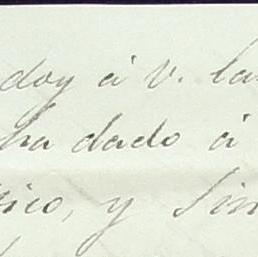 doy á V. la
ha dado á
tico, y Sin